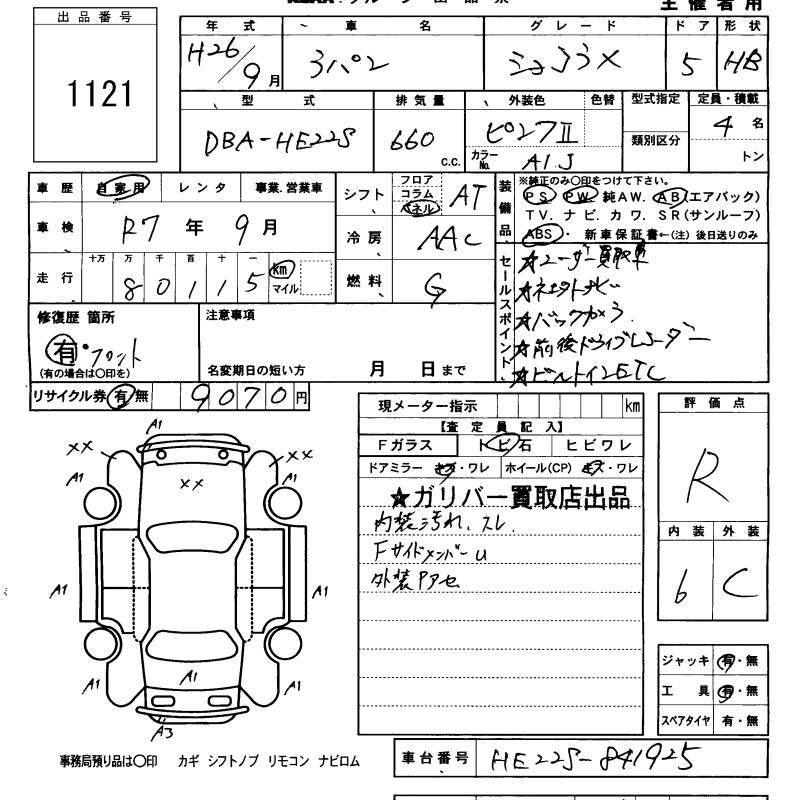 主催者用
出品番号
1121
年式 車名 グレード ドア 形状
H26/9月 ラパン ショコラX 5 HB
型式 排気量 外装色 色替 型式指定 定員・積載
DBA-HE22S 660 c.c. ピンクII 類別区分 4名
カラーNo. A1J トン
車歴 自家用 レンタ 事業.営業車 シフト フロア コラム パネル AT
装備品 ※純正のみ○印をつけて下さい。
PS PW 純AW. AB(エアバック)
TV. ナビ. カワ. SR(サンルーフ)
ABS・ 新車保証書←(注)後日送りのみ
車検 R7年9月 冷房 AAC
走行 十万 万 千 百 十 一
80115 km マイル 燃料 G
セールスポイント
★ユーザー買取車
★ネエタナビ
★バックカメラ.
★前後ドライブレコーダー
★ビルトインETC
修復歴 箇所
有・フロント
(有の場合は○印を)
注意事項
名変期日の短い方 月 日まで
リサイクル券 有 無 9070円
現メーター指示 km
【査定員記入】
Fガラス トビ石 ヒビワレ
ドアミラー キズ・ワレ ホイール(CP) キズ・ワレ
★ガリバー買取店出品
内装汚れ、スレ
FサイドメンバーU
外装Pアセ
評価点
R
内装 外装
6 C
ジャッキ 有・無
工具 有・無
スペアタイヤ 有・無
A1
XX XX
A1 XX A1
A1 A1
A1 A1 A1
A3
事務局預り品は○印 カギ シフトノブ リモコン ナビロム
車台番号 HE22S-841925